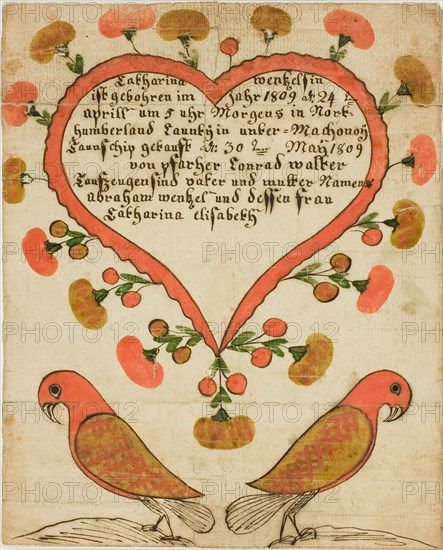 Catharina wentzelsin
ist gebohren im Jahr 1809 dt 24 t
aprill um 5 uhr Morgens in Nort
humberland Caunty in unter=Machonoy
Taunschip getauft dt. 30 t May 1809
von pfarher Conrad walter
Taufzeugen sind vater und mutter Namens
abraham wentzel und dessen frau
Catharina elisabeth